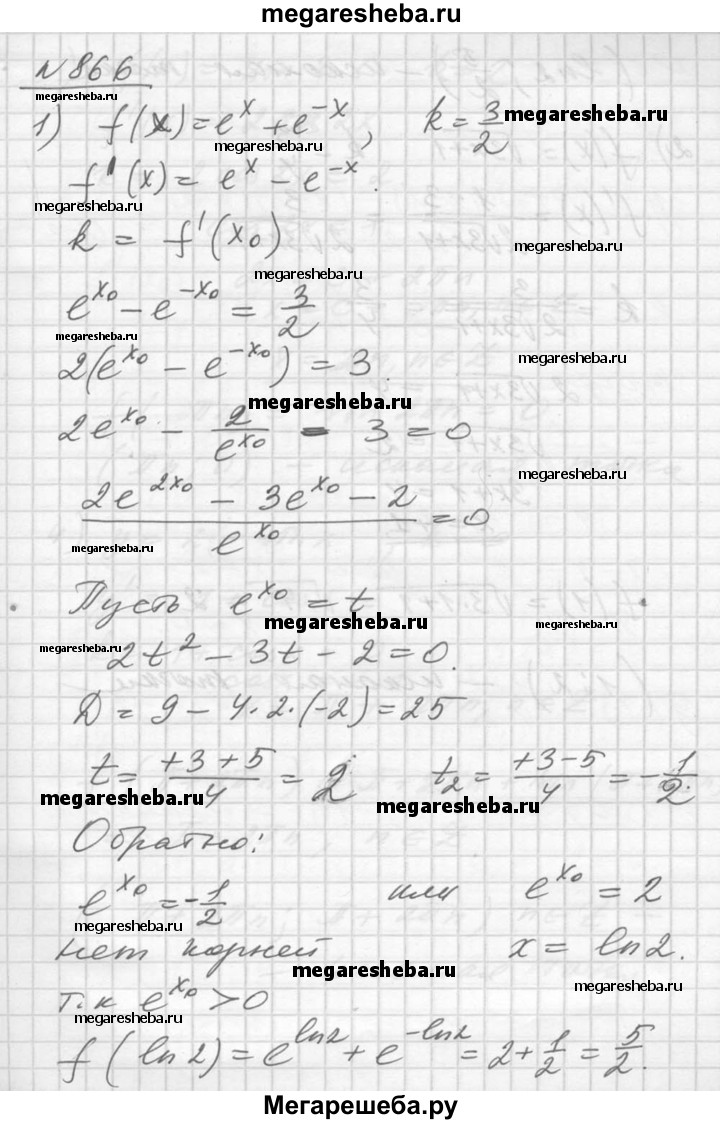 megaresheba.ru
N 866
megaresheba.ru
1) f(x) = e^x + e^{-x}, k = 3/2
megaresheba.ru
megaresheba.ru
f'(x) = e^x - e^{-x}.
megaresheba.ru
k = f'(x_0)
megaresheba.ru
megaresheba.ru
e^{x_0} - e^{-x_0} = 3/2
megaresheba.ru
2(e^{x_0} - e^{-x_0}) = 3.
megaresheba.ru
megaresheba.ru
2e^{x_0} - 2/e^{x_0} - 3 = 0
megaresheba.ru
(2e^{2x_0} - 3e^{x_0} - 2)/e^{x_0} = 0
megaresheba.ru
Пусть e^{x_0} = t
megaresheba.ru
megaresheba.ru
megaresheba.ru
2t^2 - 3t - 2 = 0.
Д = 9 - 4·2·(-2) = 25
t = (+3+5)/4 = 2 t_2 = (+3-5)/4 = -1/2.
megaresheba.ru
megaresheba.ru
Обратно:
e^{x_0} = -1/2 или e^{x_0} = 2
megaresheba.ru
нет корней x = ln2.
megaresheba.ru
megaresheba.ru
т.к e^{x_0} > 0
megaresheba.ru
f(ln2) = e^{ln2} + e^{-ln2} = 2 + 1/2 = 5/2.
Мегарешеба.ру